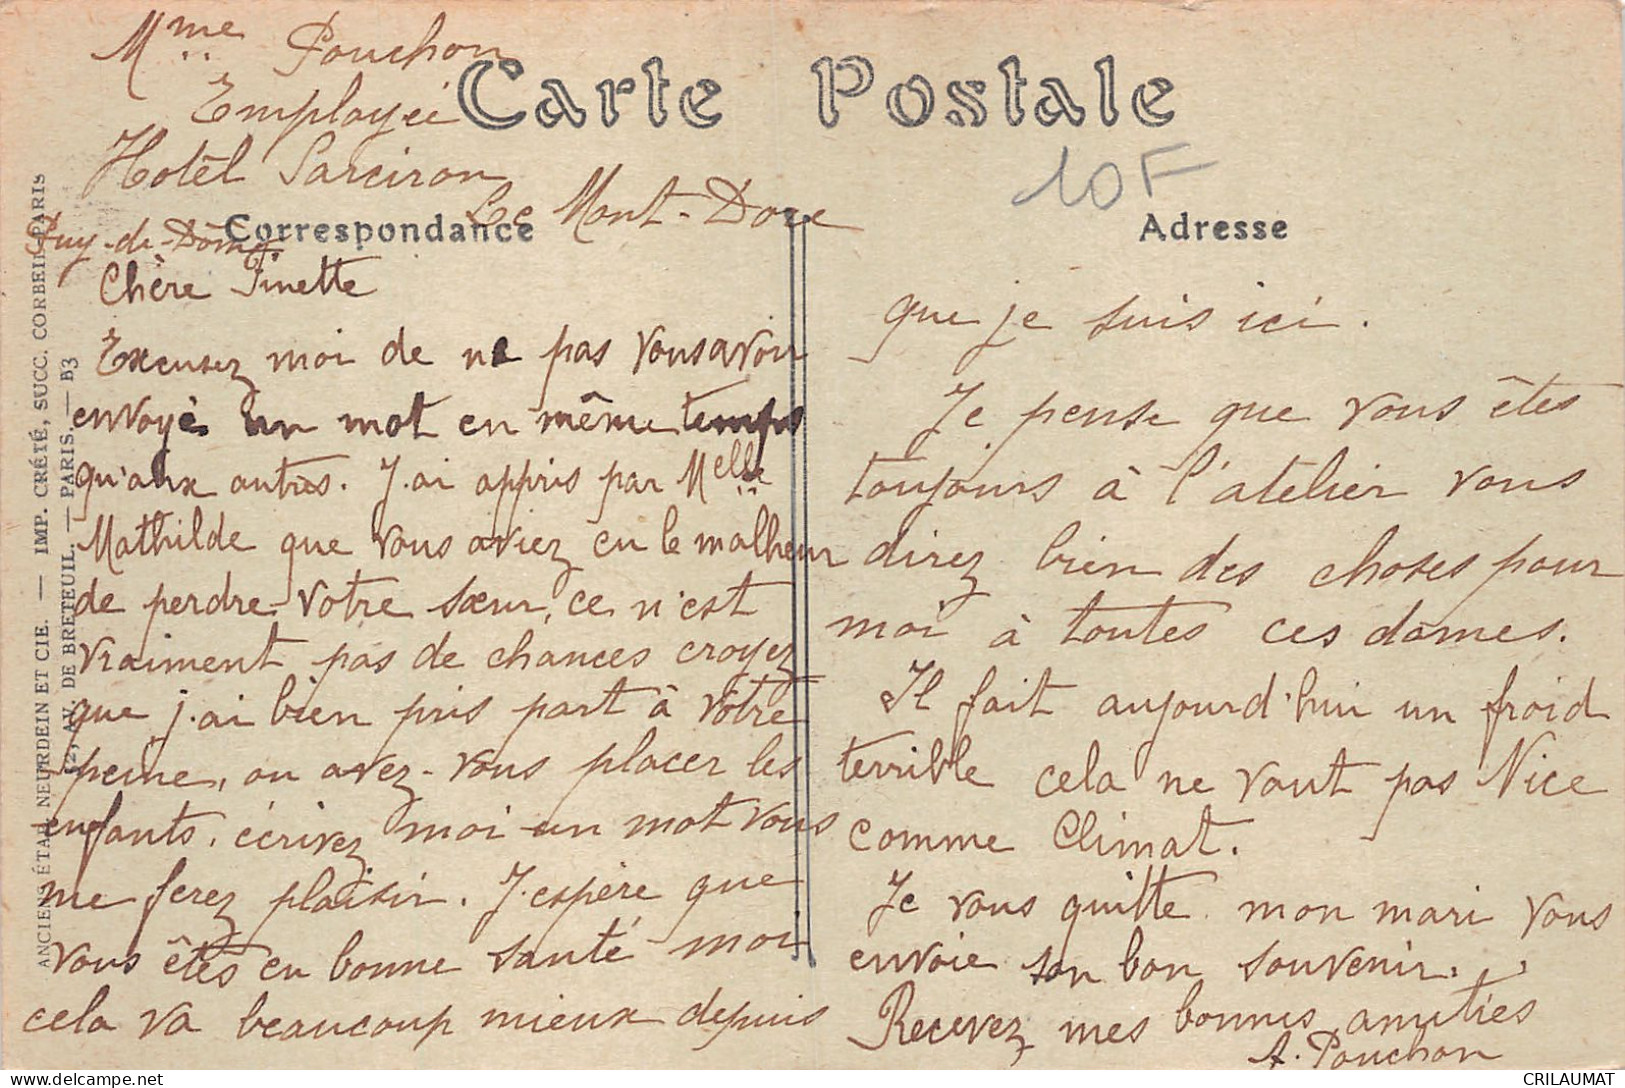 Mme Pouchon
Employée
Carte Postale
Hotêl Sarciron
10F
Le Mont-Dore
Puy-de-Dôme
Correspondance
Adresse
Chère Finette
Excusez moi de ne pas vous avoir
envoyé un mot en même temps
qu'aux autres. J.ai appris par Melle
Mathilde que vous aviez eu le malheur
de perdre votre sœur, ce n'est
vraiment pas de chances croyez
que j.ai bien pris part à vôtre
peine, ou avez-vous placer les
enfants. écrivez moi un mot vous
me ferez plaisir. J.espère que
vous êtes en bonne santé moi
cela va beaucoup mieux depuis
que je suis ici.
Je pense que vous êtes
toujours à l'atelier vous
direz bien des choses pour
moi à toutes ces dames.
Il fait aujourd'hui un froid
terrible cela ne vaut pas Nice
comme Climat.
Je vous quitte mon mari vous
envoie son bon souvenir.
Recevez mes bonnes amitiés
A. Pouchon
ANCIENS ÉTAB. NEURDEIN ET CIE. — IMP. CRÉTÉ, SUCC. CORBEIL-PARIS
52, AV. DE BRETEUIL. — PARIS. — B3
CRILAUMAT